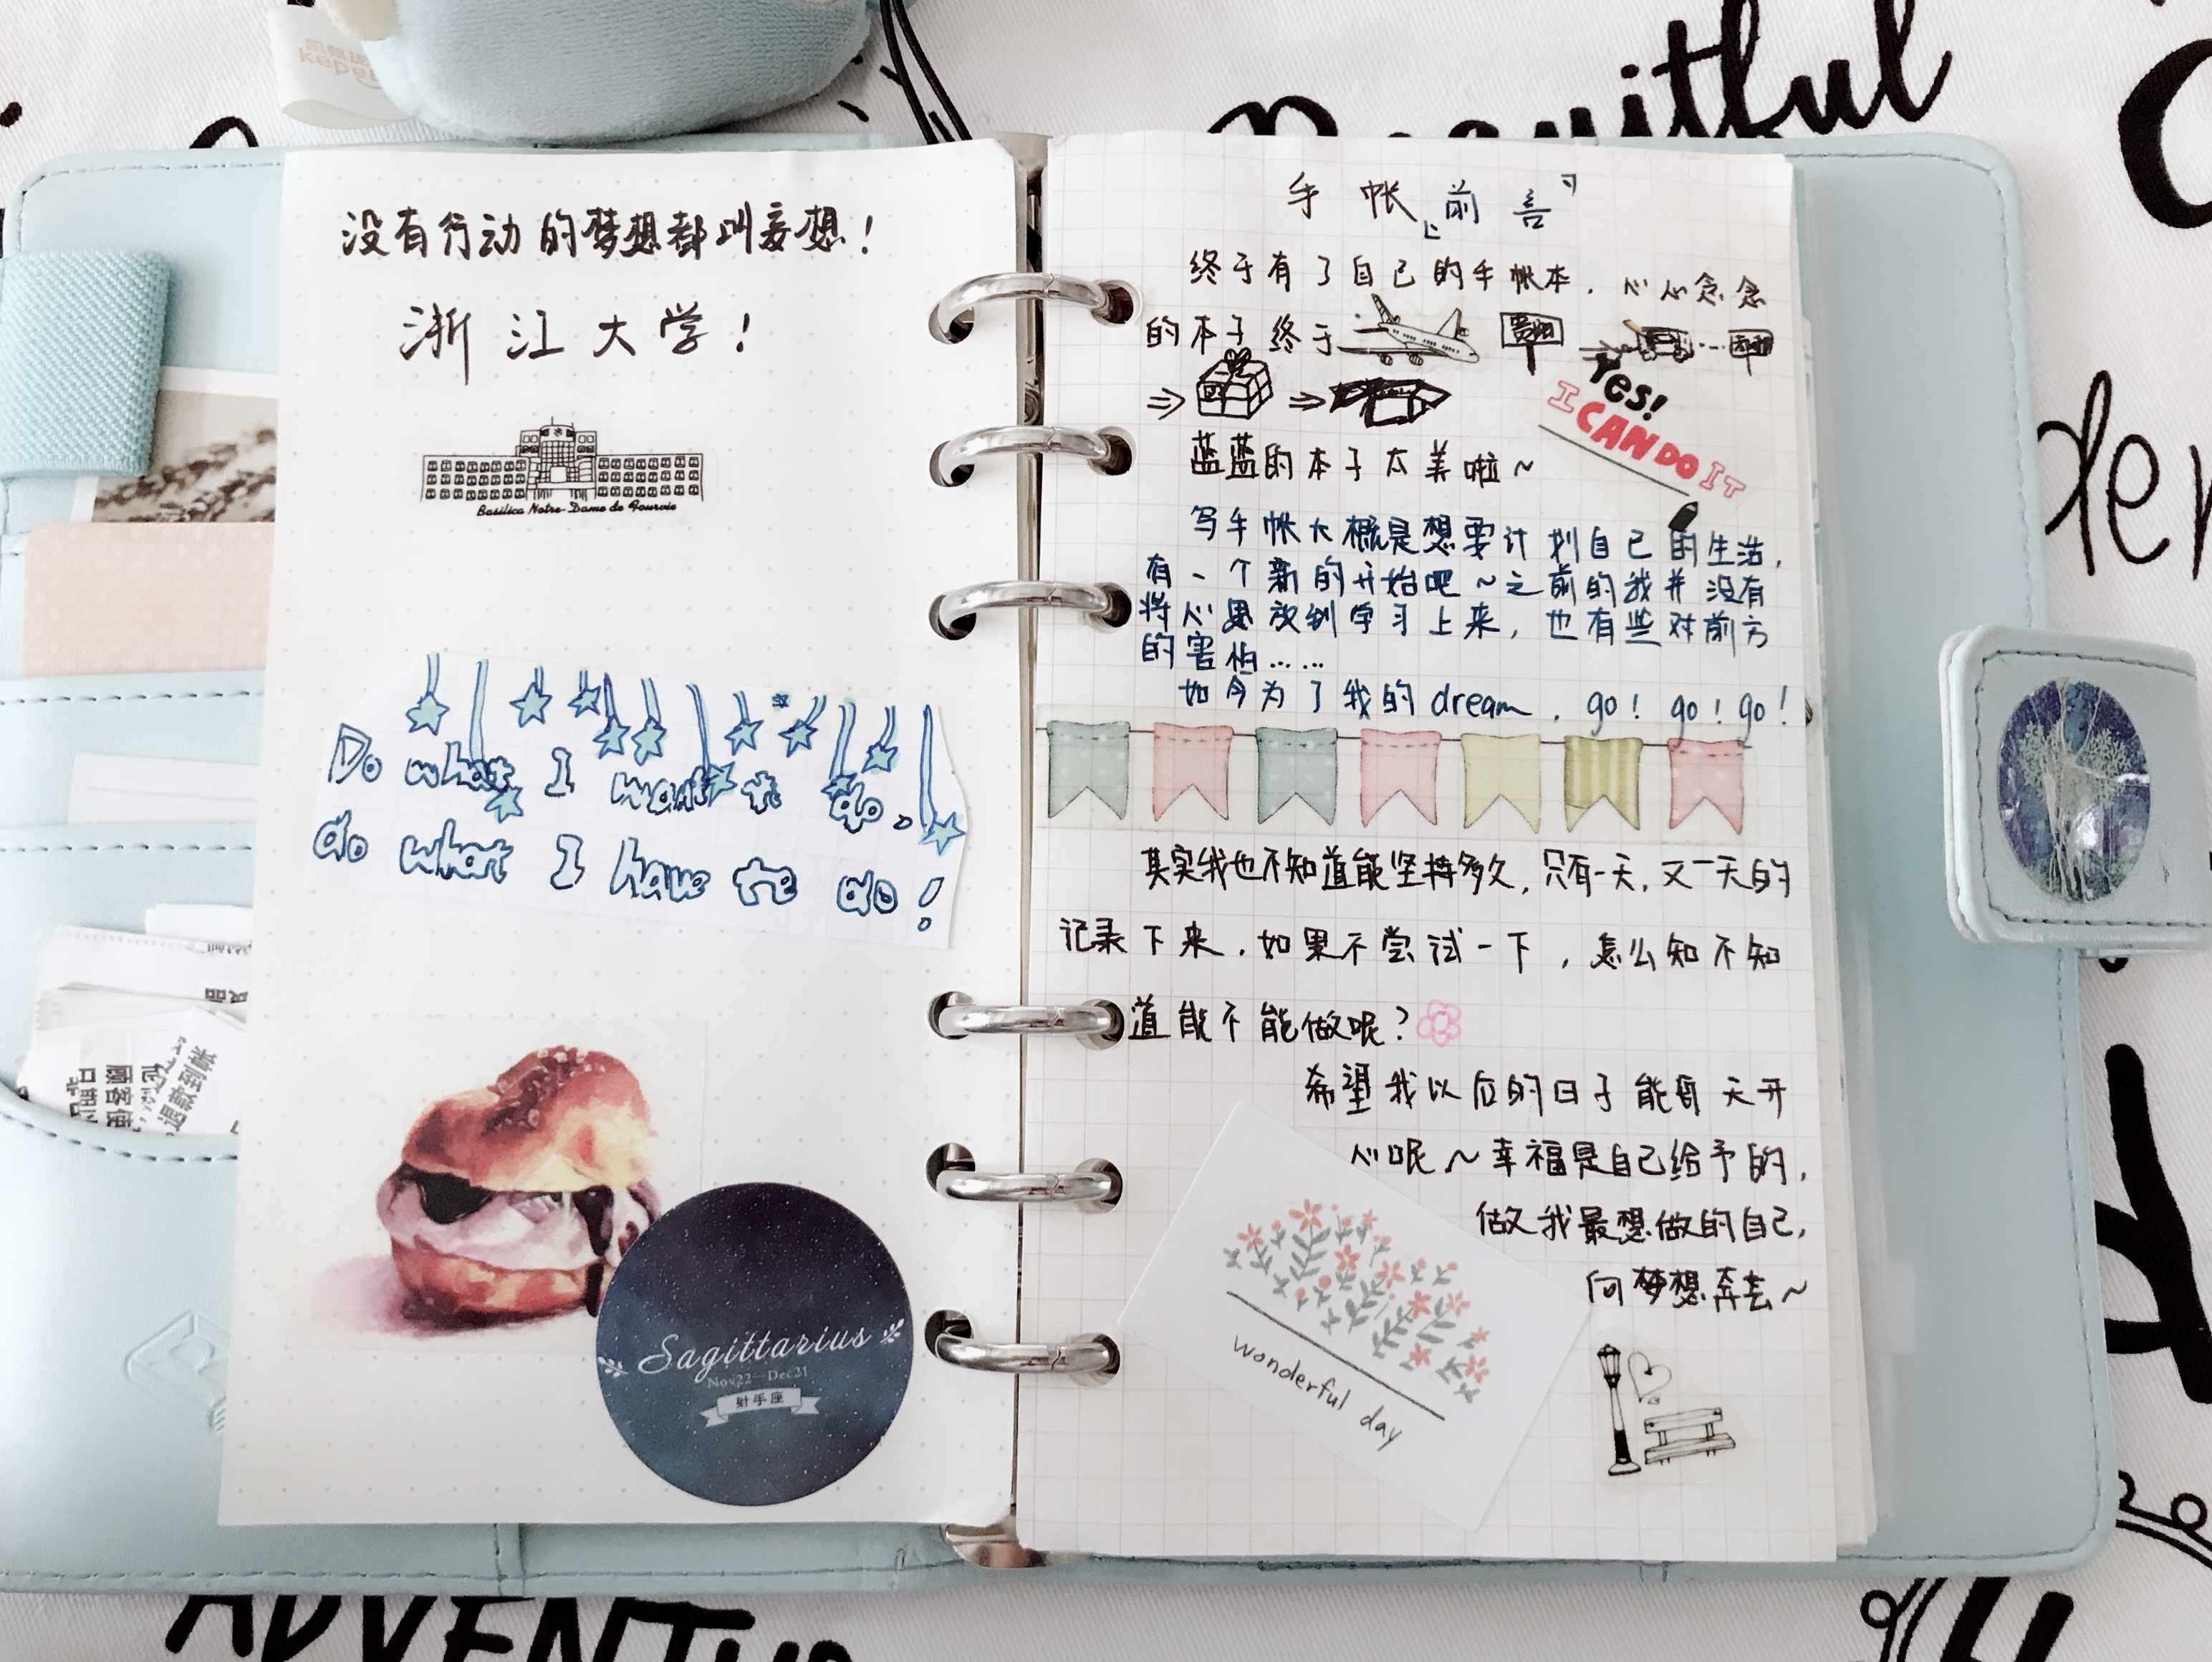 没有行动的梦想都叫妄想！
浙江大学！
Basilica Notre-Dame de Fourvie
Do what I want to do,
do what I have to do!
Sagittarius
Nov22—Dec21
射手座
手帐「前言」
终于有了自己的手帐本，心心念念
的本子终于
Yes!
I CAN DO IT
蓝蓝的本子太美啦～
写手帐大概是想要计划自己的生活，
有一个新的开始吧～之前的我并没有
将心思放到学习上来，也有些对前方
的害怕……
如今为了我的dream，go！go！go！
其实我也不知道能坚持多久，只有一天，又一天的
记录下来，如果不尝试一下，怎么知不知
道能不能做呢？
希望我以后的日子能 天开
心呢～幸福是自己给予的，
做我最想做的自己，
向梦想奔去～
wonderful day
Beautiful
ADVENTU